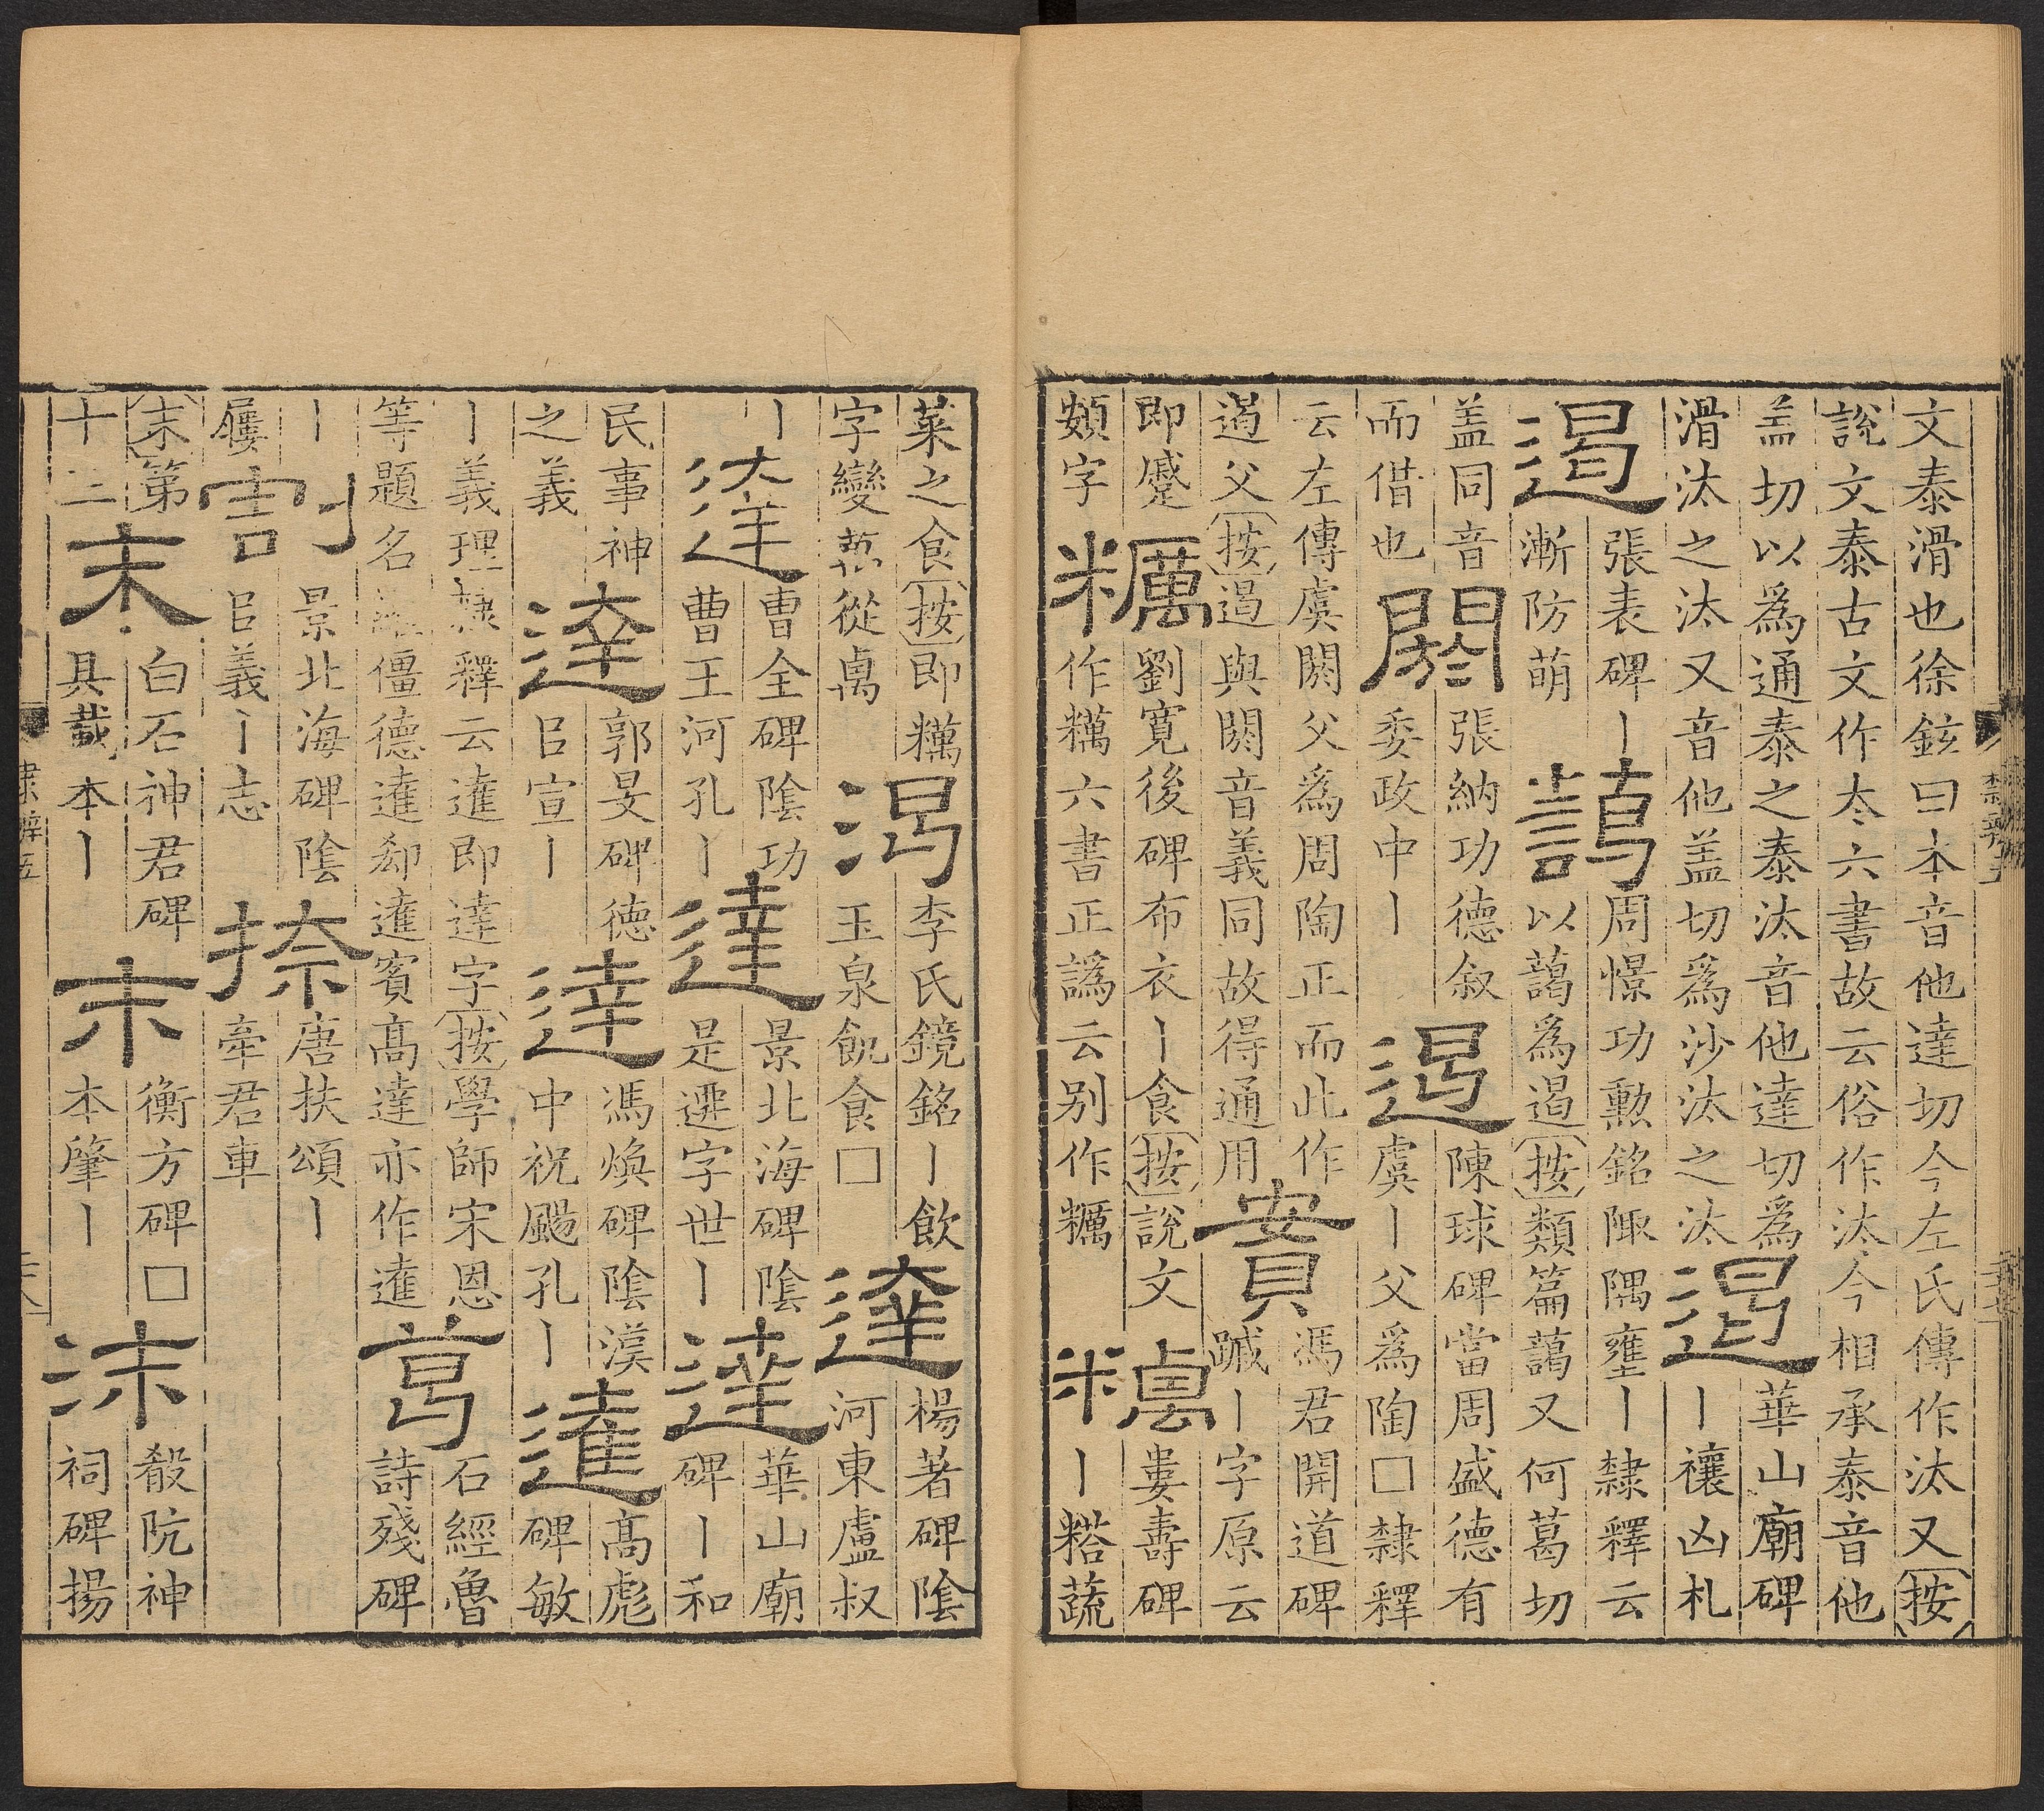 文泰滑也徐鉉曰本音他達切今左氏傳作汰又按
說文泰古文作夳六書故云俗作汰今相承泰音他
盖切以為通泰之泰汰音他達切為遏華山廟碑
滑汰之汰又音他盖切為沙汰之汰丨禳凶札
遏張表碑丨藹周憬功勲銘陬隅壅丨隸釋云
漸防萌以藹為遏按類篇藹又何葛切
盖同音閼張納功德叙遏陳球碑當周盛德有
而借也委政中丨虞丨父為陶□隸釋
云左傳虞閼父為周陶正而此作馮君開道碑
遏父按遏與閼音義同故得通用蹠丨字原云
即蹙糲劉寬後碑布衣丨食按說文婁壽碑
頞字作糲六書正譌云别作糲丨糌蔬
菜之食按即糲渴李氏鏡銘丨飲達楊著碑陰
字變從禼玉泉飢食□河東盧叔
丨達曹全碑陰功達景北海碑陰達華山廟
曹王河孔丨是遷字世丨碑丨和
民事神達郭旻碑德達馮煥碑陰漢達高彪
之義㠯宣丨中祝颺孔丨碑敏
丨義理隸釋云達即達字按學師宋恩葛石經魯
等題名僵德達郄達賓高達亦作達詩殘碑
丨割景北海碑陰捺唐扶頌丨
屨㠯義丨志牽君車
末第末白石神君碑末衡方碑□沫殽阬神
十三具載本丨本肇丨祠碑揚